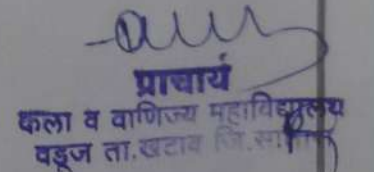 प्राचार्य
कला व वाणिज्य महाविद्यालय
वडूज ता.खटाव जि.